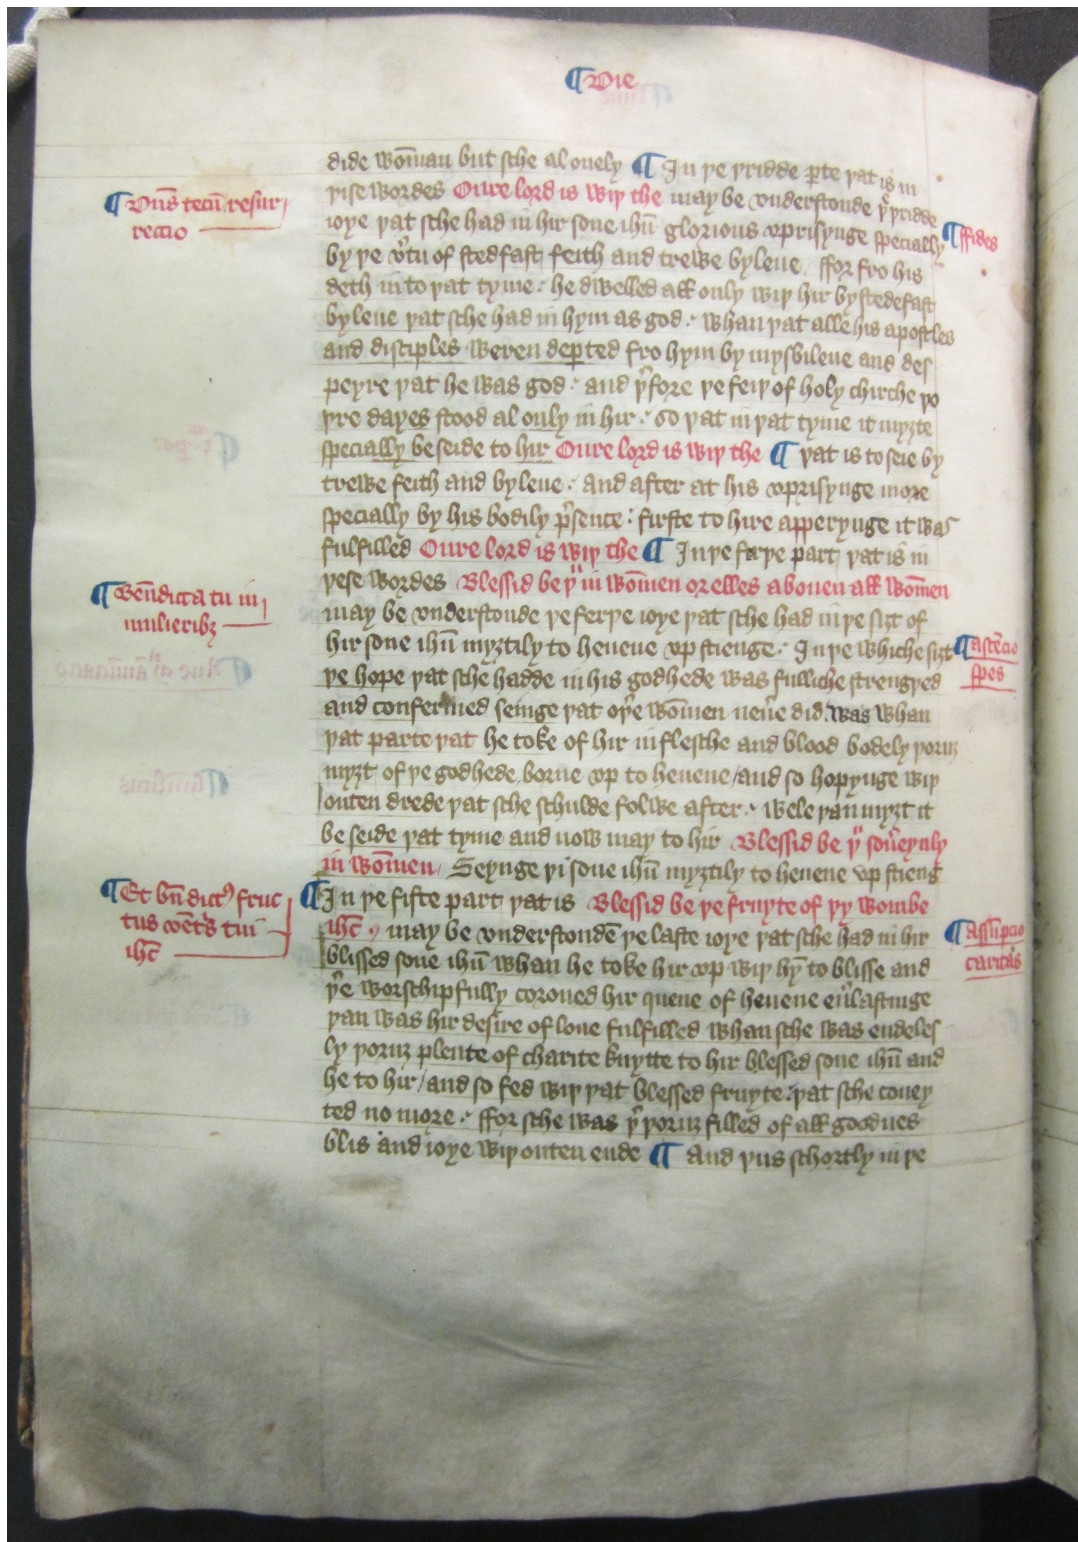 ¶ Die
dide wom̄an but sche al onely ¶ In þe þridde ꝑte þat is in
þise wordes Oure lord is wiþ the may be vnderstonde þe þridde
¶ Dn̄s tecū resur/
reccio
ioye þat sche had in hir sone ihū glorious vprisynge specially
¶ ffides
by þe v̓tu of stedfast feith and trewe byleue. ffor fro his
deth in to þat tyme: he dwelled all only wiþ hir by stedefast
byleue þat sche had in hym as god: whan þat alle his apostles
and disciples weren deꝑted fro hym by mysbileue and des
peyre þat he was god: and þ̓fore þe feiþ of holy chirche þo
þre dayes stood al only in hir: so þat in þat tyme it myȝte
specially be seide to hir Oure lord is wiþ the ¶ þat is to seie by
trewe feith and byleue: And after at his vprisynge more
specially by his bodily p̓sence: firste to hire apperynge it was
fulfilled Oure lord is wiþ the ¶ In þe ferþe part þat is in
þese wordes Blessid be þu in wom̄en or elles abouen all wom̄en
¶ Bn̄dicta tu in
mulieribȝ
may be vnderstonde þe ferþe ioye þat sche had in þe siȝt of
hir sone ihū myȝtily to heuene vp stienge: In þe whiche siȝt
¶ ascēcio
spes
þe hope þat sche hadde in his godhede was fulliche strengþed
and confermed seinge þat oþ̓e wom̄en neu̓e did: was whan
þat parte þat he toke of hir in flesche and blood bodely þoruȝ
myȝt of þe godhede borne vp to heuene/and so hopynge wiþ
outen drede þat sche schulde folwe after: wele þan myȝt it
be seide þat tyme and now may to hir Blessid be þu sou̓eynly
in wom̄en/ Seynge þi sone ihū myȝtily to heuene vp stieng
¶ Et bn̄dict⁹ fruc
tus vēt̓s tui
ih̄c
¶ In þe fifte part þat is Blessid be þe fruyte of þy wombe
ih̄c, may be vnderstondē þe laste ioye þat sche had in hir
¶ assūpcio
caritas
blissed sone ihū whan he toke hir vp wiþ hȳ to blisse and
þ̓e worschipfully coroned hir quene of heuene eu̓lastinge
þan was hir desire of loue fulfilled whan sche was endeles
ly þoruȝ plente of charite knytte to hir blessed sone ihū and
he to hir/and so fed wiþ þat blessed fruyte: þat sche couey
ted no more: ffor sche was þ̓ þoruȝ filled of all goodnes
blis and ioye wiþ outen ende ¶ And þus schortly in þe